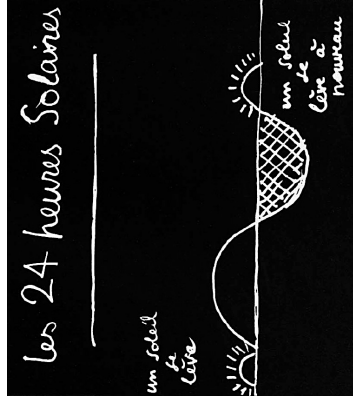 Les 24 heures Solaires
un soleil
se
lève
un soleil
se
lève à
nouveau